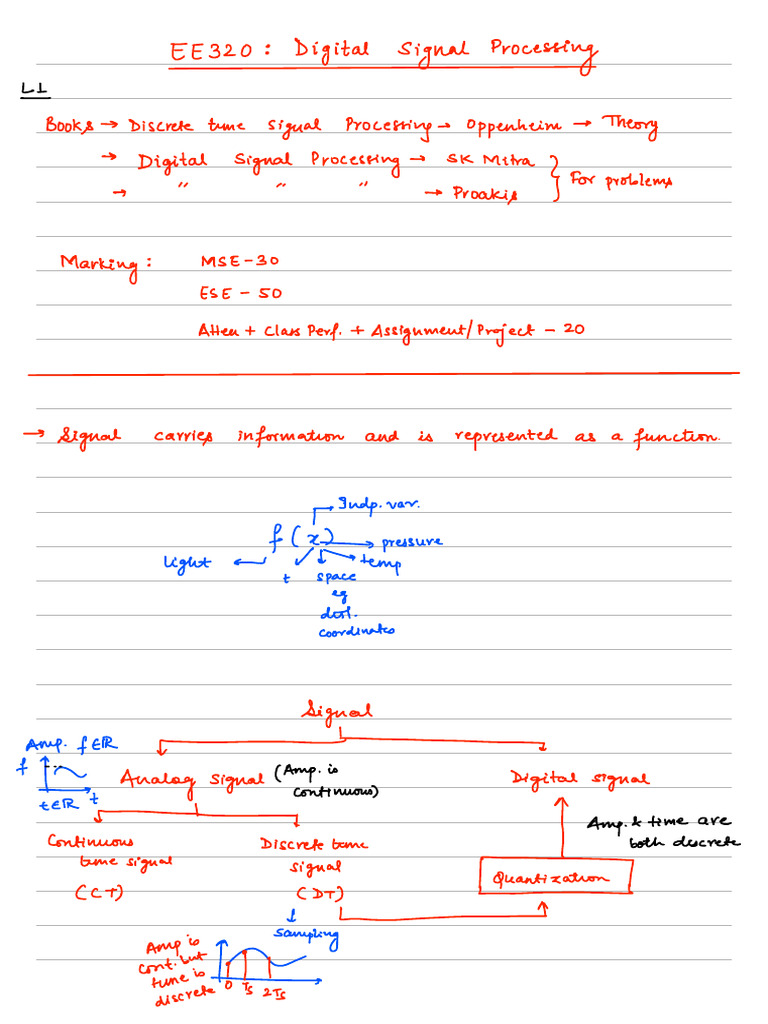 EE320 : Digital Signal Processing
L1
Books → Discrete time Signal Processing → Oppenheim → Theory
→ Digital Signal Processing → SK Mitra
→ " " " → Proakis
For problems
Marking : MSE-30
ESE - 50
Atten + Class Perf. + Assignment/Project - 20
→ Signal carries information and is represented as a function.
Indp. var.
f(x) → pressure
light ← temp
t space
eg
dist.
coordinates
Signal
Amp. f∈ℝ
f
t∈ℝ t
Analog signal (Amp. is
continuous)
Digital signal
Amp. & time are
both discrete
Continuous
time signal
(CT)
Discrete time
signal
(DT)
Quantization
sampling
Amp is
cont. but
time is
discrete
0 Ts 2Ts